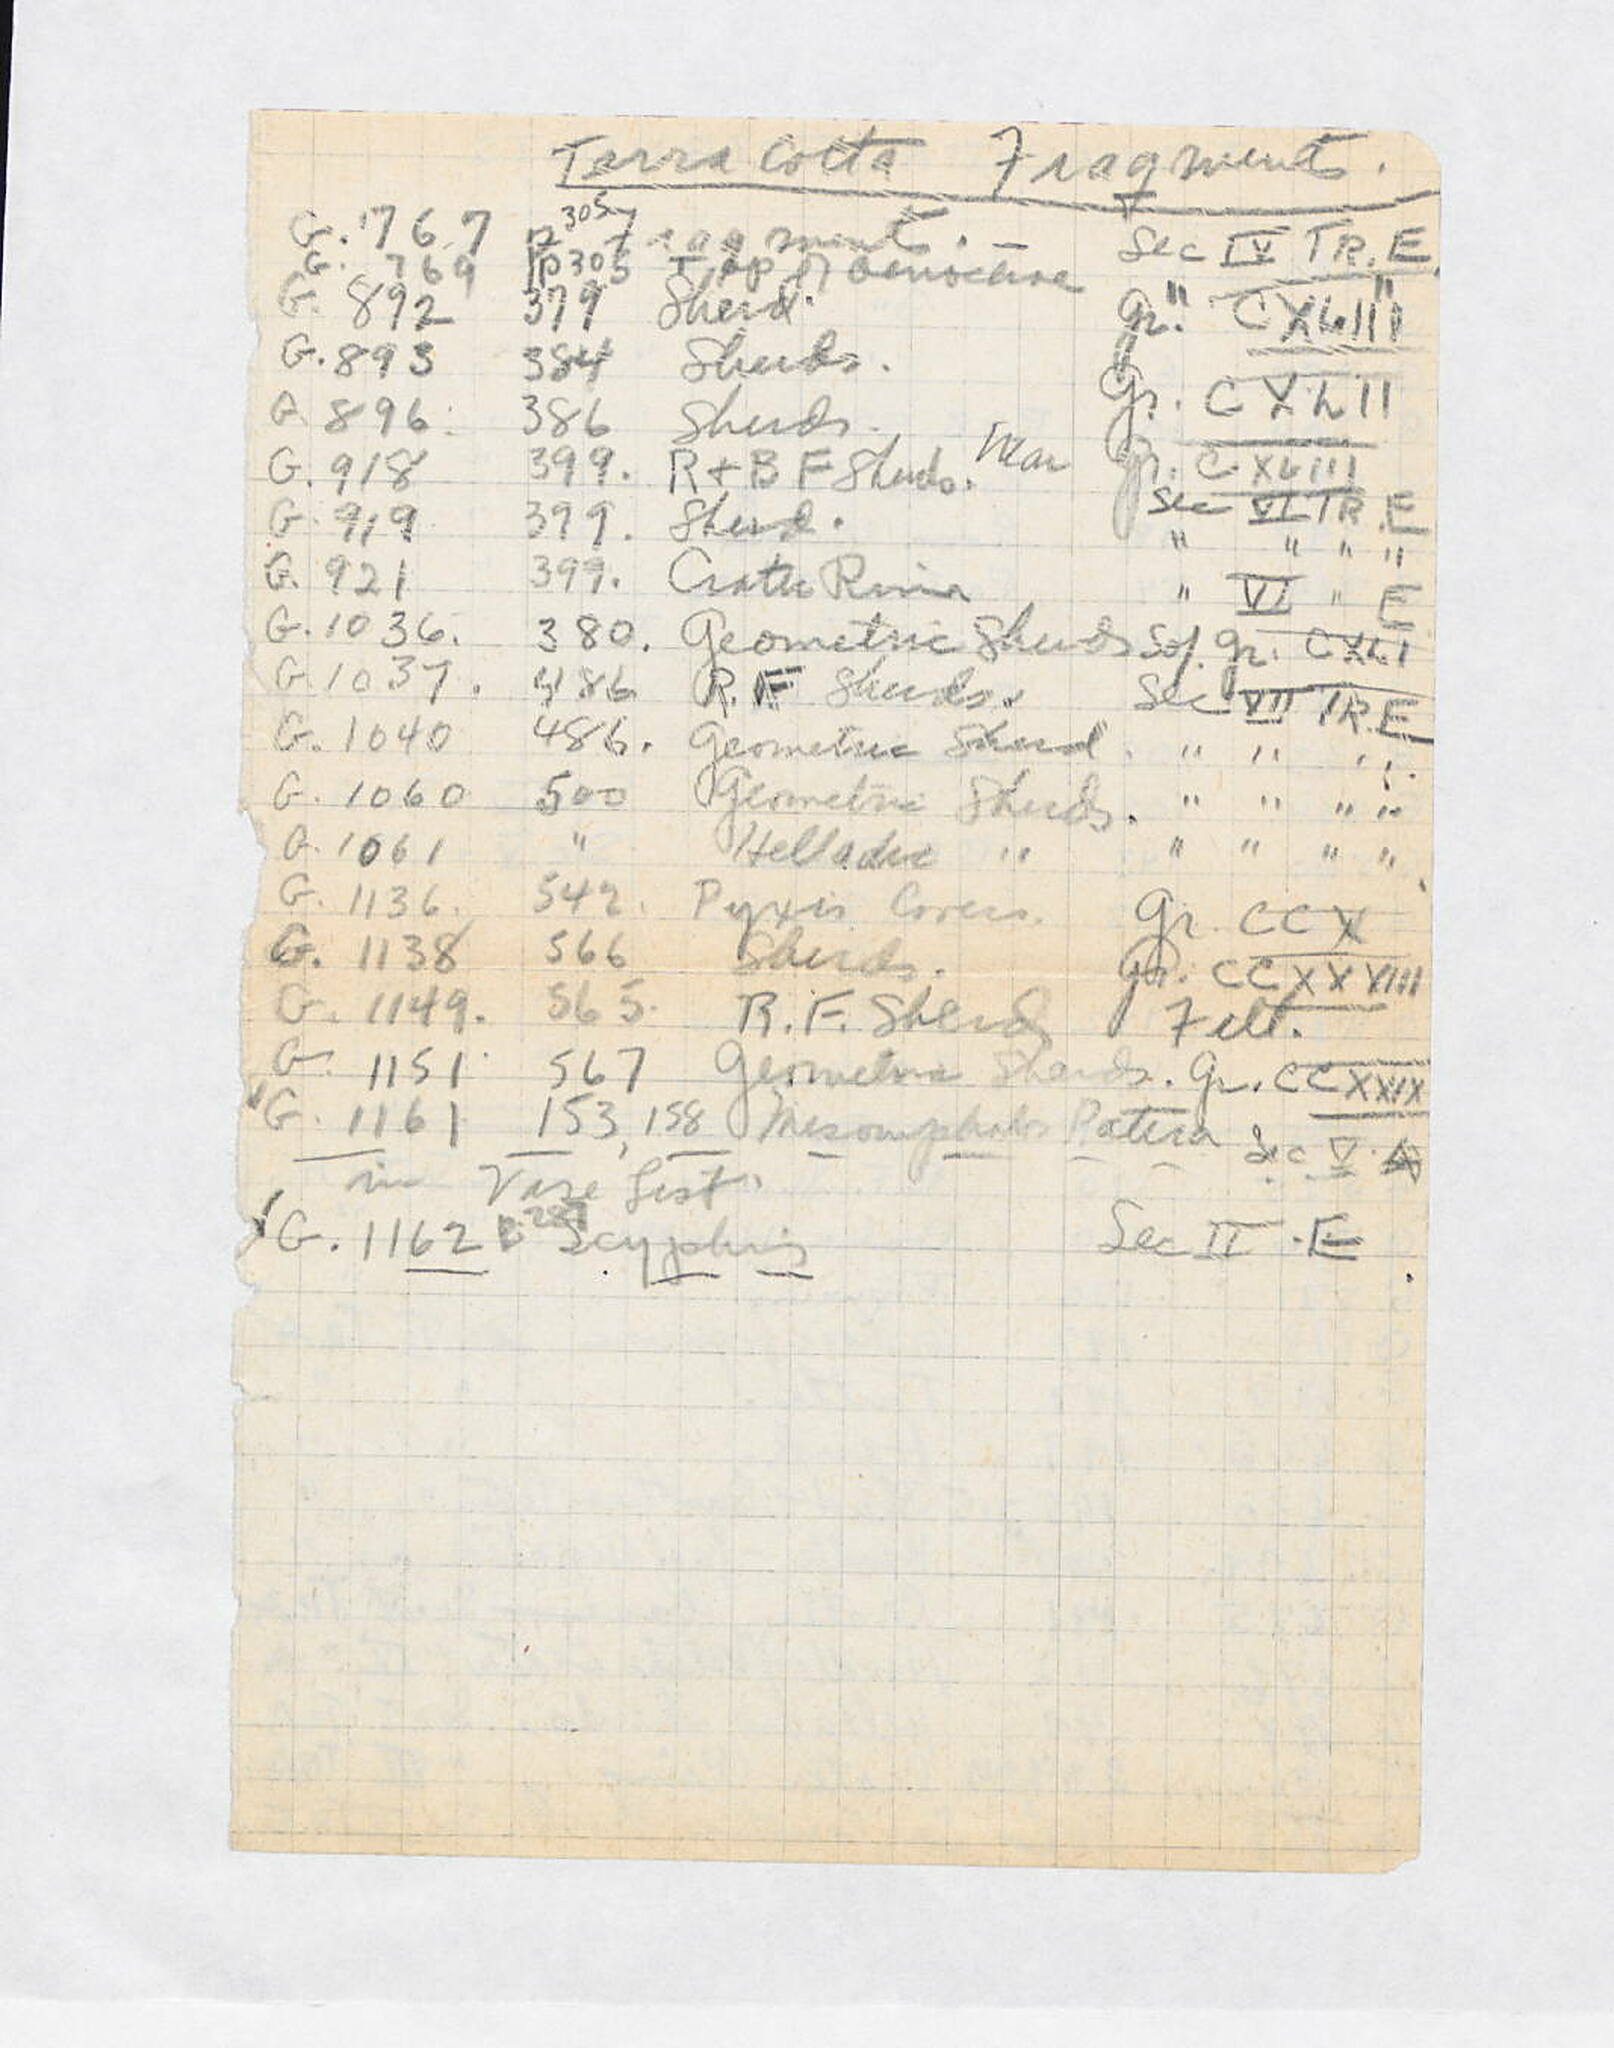 Terra Cotta Fragments.
G. 767 p305 Fragment. — Sec IV TR. E.
G. 769 p305 Top of Oenochoe " "
G. 892 379 Sherd. Gr. CXLIII
G. 893 384 Sherds. Gr. CXLII
G. 896. 386 Sherds. Near Gr. CXLIII
G. 918 399. R + B F Sherds. Sec VI TR. E
G. 919 399. Sherd. " " " "
G. 921 399. Crater Rim " VI " E
G. 1036. 380. Geometric Sherds S of Gr. CXLI
G. 1037. 486 R. F Sherds. Sec VII TR. E
G. 1040 486. Geometric Sherd. " " " "
G. 1060 500 Geometric Sherds. " " " "
G. 1061 " Helladic " " " " "
G. 1136. 542. Pyxis Covers. Gr. CCX
G. 1138 566 Sherds. Gr. CCXXXVIII
G. 1149. 565. R. F. Sherds Fill.
G. 1151. 567 Geometric Sherds. Gr. CCXXXIX
G. 1161 153, 158 Mesomphalos Patera Sec V. A
in Vase List.
G. 1162 p. 287 Scyphus Sec II. E